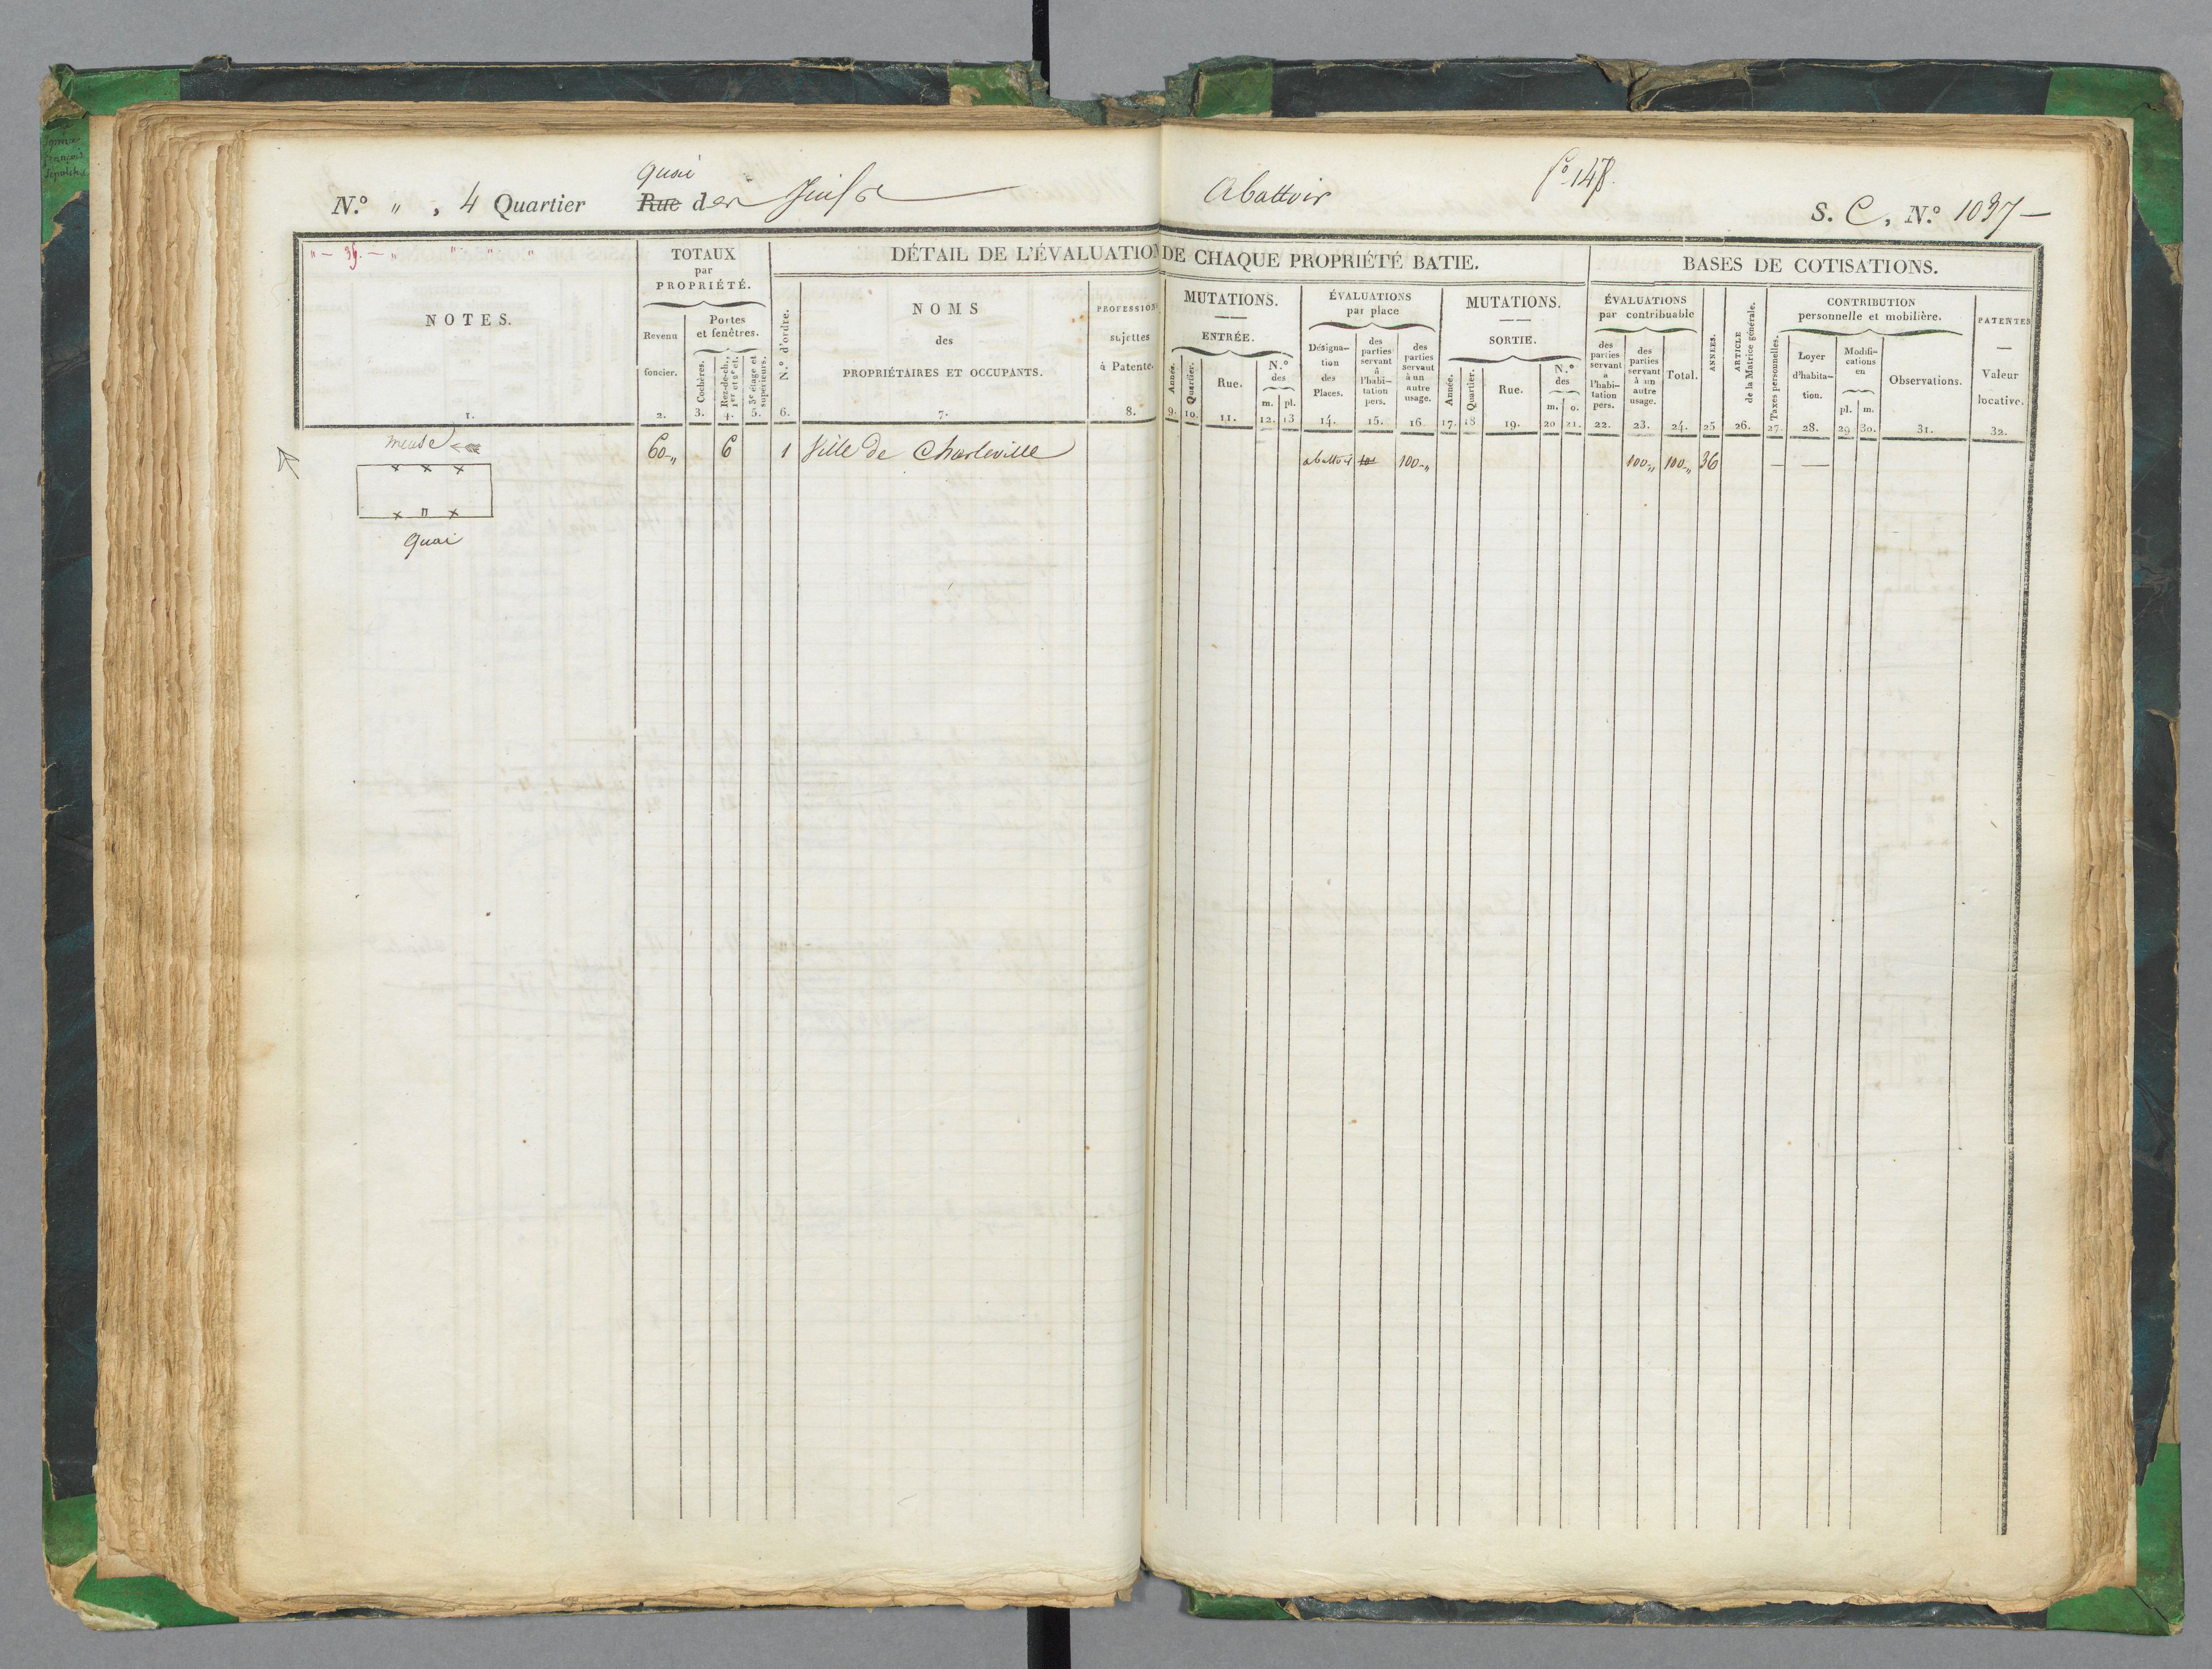 quai
N.º " , 4 Quartier Rue des Juifs
Abattoir
fº 148.
S. C, N.º 1037 —
" — 39. — " " " "
NOTES.
1.
TOTAUX
par
PROPRIÉTÉ.
Revenu
foncier.
2.
Portes
et fenêtres.
Cochères.
3.
Rez-de-ch.,
1er et 2e ét.
4.
3e étage et
supérieurs.
5.
DÉTAIL DE L'ÉVALUATION DE CHAQUE PROPRIÉTÉ BATIE.
N.º d'ordre.
6.
NOMS
des
PROPRIÉTAIRES ET OCCUPANTS.
7.
PROFESSIONS
sujettes
à Patente.
8.
MUTATIONS.
ENTRÉE.
Année.
9.
Quartier.
10.
Rue.
11.
N.º
des
m. pl.
12. 13
ÉVALUATIONS
par place
Désigna-
tion
des
Places.
14.
des
parties
servant
à
l'habi-
tation
pers.
15.
des
parties
servant
à un
autre
usage.
16.
MUTATIONS.
SORTIE.
Année.
17.
Quartier.
18
Rue.
19.
N.º
des
m. o.
20 21.
BASES DE COTISATIONS.
ÉVALUATIONS
par contribuable
des
parties
servant
à
l'habi-
tation
pers.
22.
des
parties
servant
à un
autre
usage.
23.
Total.
24.
ANNÉES.
25
ARTICLE
de la Matrice générale.
26.
CONTRIBUTION
personnelle et mobilière.
Taxes personnelles.
27.
Loyer
d'habita-
tion.
28.
Modifi-
cations
en
pl. m.
29 30.
Observations.
31.
PATENTES
—
Valeur
locative.
32.
meuse
x x x
x n x
Quai
60 " 6 1 Ville de Charleville abattoir 100 " 100 " 100 " 36 — —